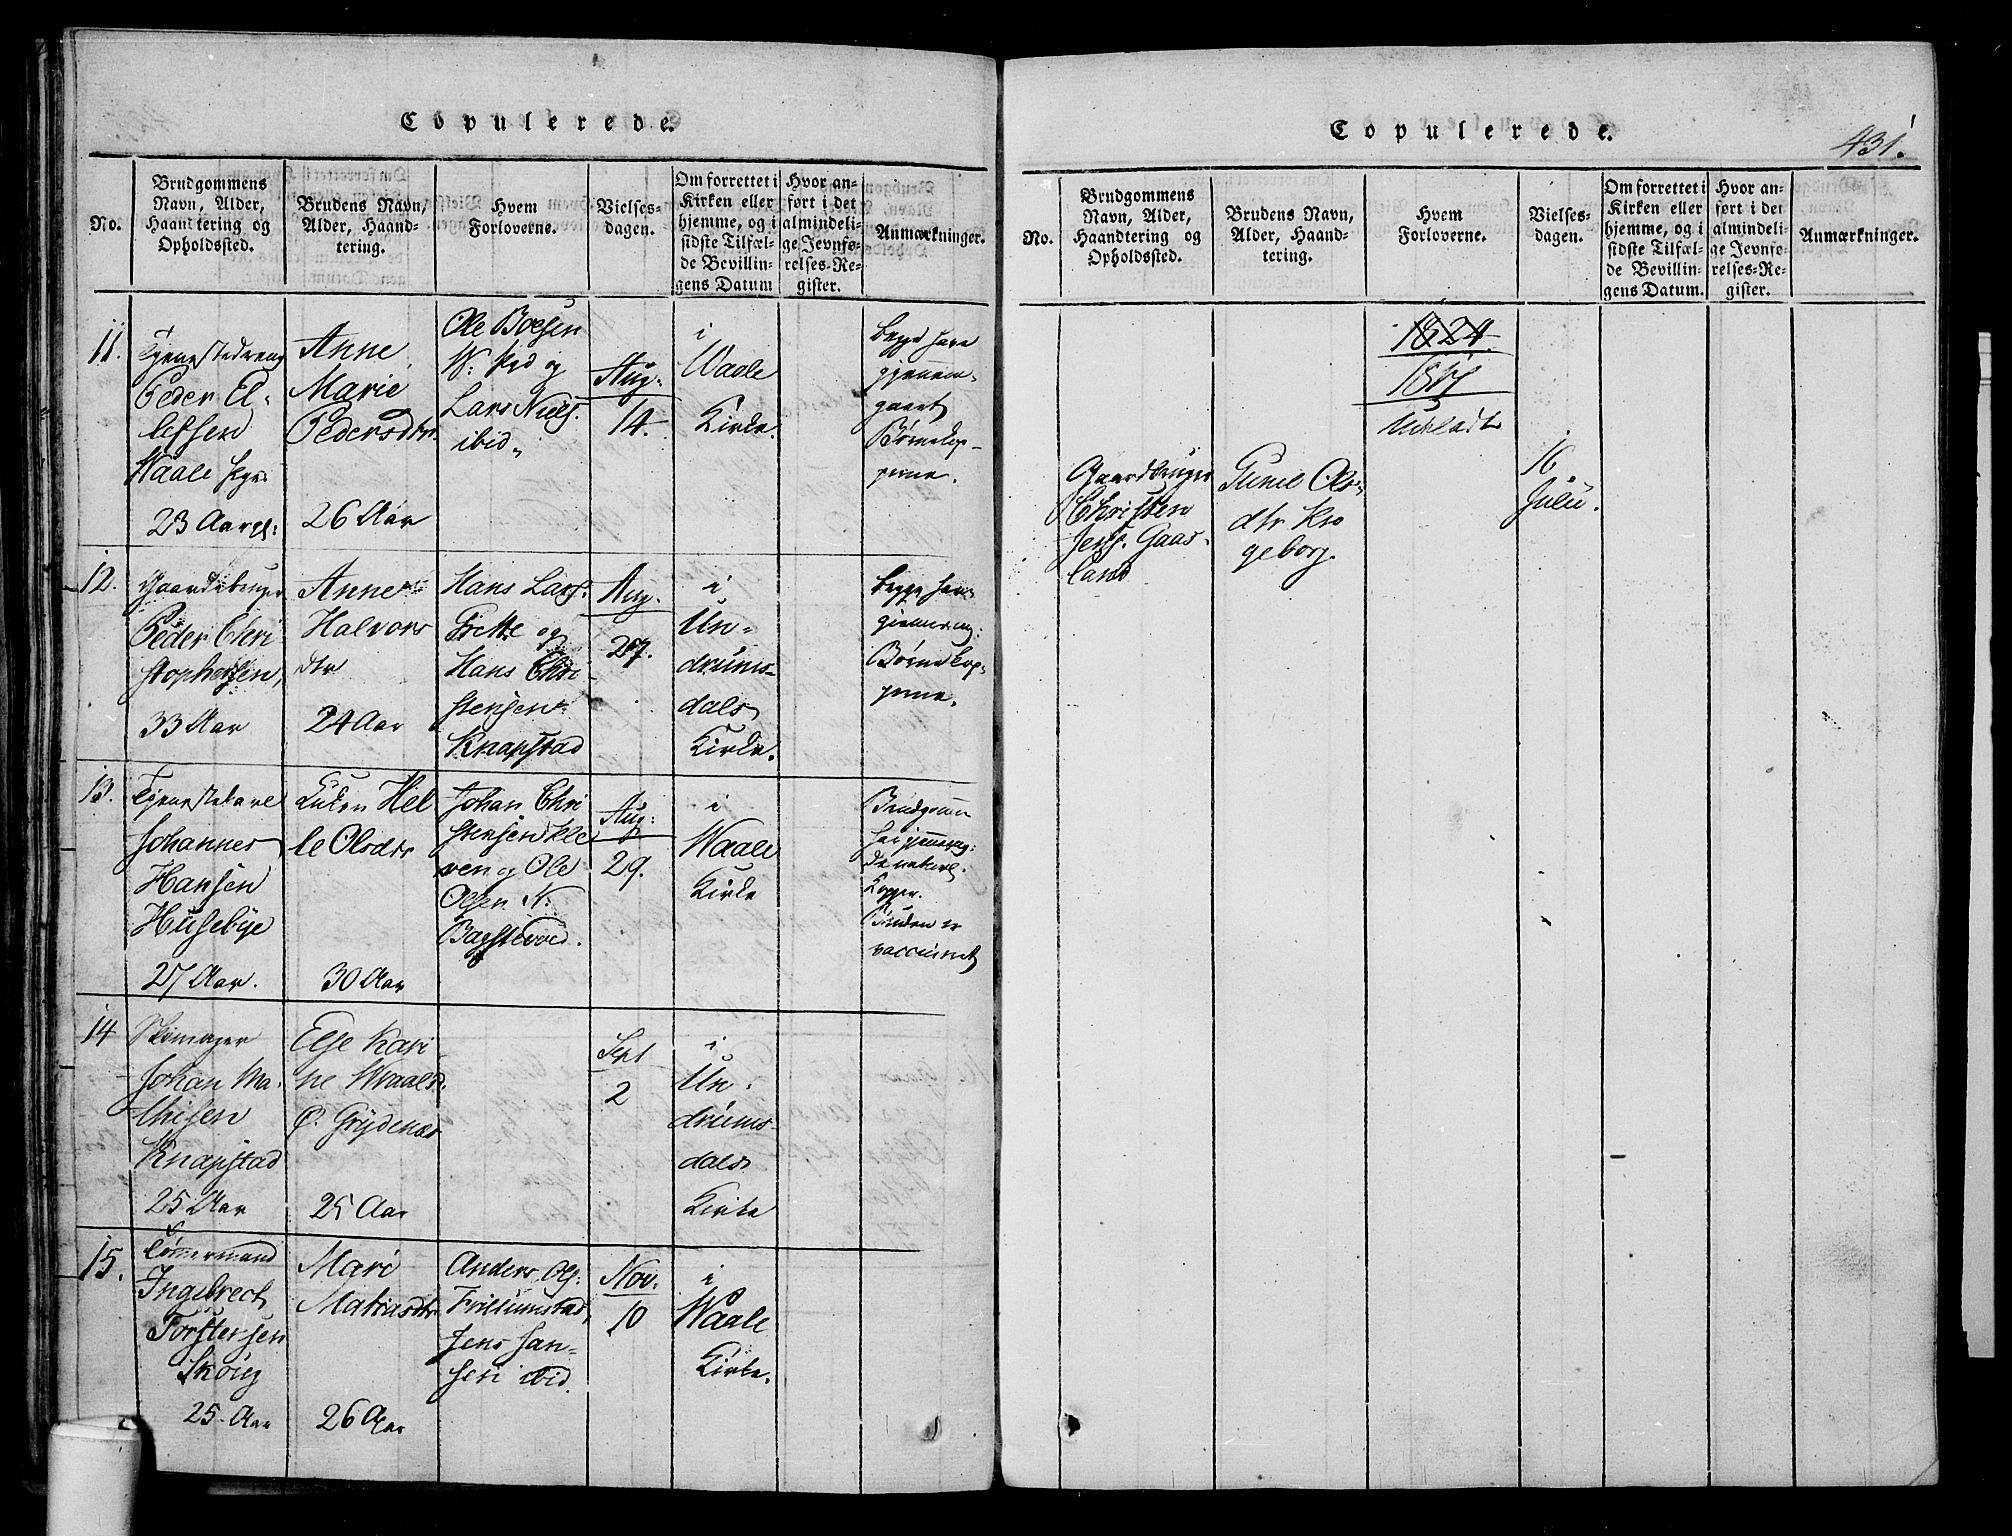 Copulerede.
No.
Brudgommens
Navn, Alder,
Haandtering og
Opholdssted.
Brudens Navn,
Alder, Haand-
tering.
Hvem
Forloverne.
Vielses-
dagen.
Om forrettet i
Kirken eller
hjemme, og i
sidste Tilfæl-
de Bevillin-
gens Datum
Hvor an-
ført i det
almindeli-
ge Jevnfø-
relses-Re-
gister.
Anmærkninger.
11.
Tjenestedreng
Peder El-
lefsen
Waale
23 Aar gl:
Anne
Marie
Pedersdtr.
26 Aar
Ole Boesen
og
Lars Niels.
ibid,
Aug.
14.
i
Waale
Kirke.
begge have
gjennem-
gaaet
Børnekop-
perne.
12.
Gaardebruger
Peder Chri
stophersen,
33 Aar
Anne
Halvors
dtr
24 Aar
Hans Lars.
og
Hans Chri-
stensen
Knapstad
Aug.
27.
i
Un-
drums-
dals
Kirke.
begge have
gjennemg:
Børnekop-
perne.
13.
Tjenestekarl
Johannes
Hansen
Husebye
27 Aar.
Hel
le Olsdtr
30 Aar
Johan Chri
stensen Kle
ven og Ole
Olsen N.
Aug:
29.
i
Waale
Kirke
Brudgommen
har gjennemg:
de naturl.
Kopper.
Bruden er
vaccinnet
14
Skomager
Johan Ma-
thisen
Knapstad
25 Aar
Else Kari
ne Waalsd.
Ø. Grydenæs
25 Aar
Sept
2
i
Un-
drums-
dals
Kirke
15.
Tømmermand
Ingebrect
Forstersen
Skoug
25 Aar
Mari
Matiasdtr
26 Aar
Anders Ols:
Frillumstad,
Jens Han-
sen ibid.
Nov.
10
i
Waale
Kirke.
Copulerede.
431.
No.
Brudgommens
Navn, Alder,
Haandtering og
Opholdssted.
Brudens Navn,
Alder, Haand-
tering.
Hvem
Forloverne.
Vielses-
dagen.
Om forrettet i
Kirken eller
hjemme, og i
sidste Tilfæl-
de Bevillin-
gens Datum.
Hvor an-
ført i det
almindeli-
ge Jevnfø-
relses-Re-
gister.
Anmærkninger.
1824.
1817
Udeladt
Gaardbruger
Christen
Jens. Gaas-
land
Gunil Ols-
dtr Kro
geborg.
16
Julii.